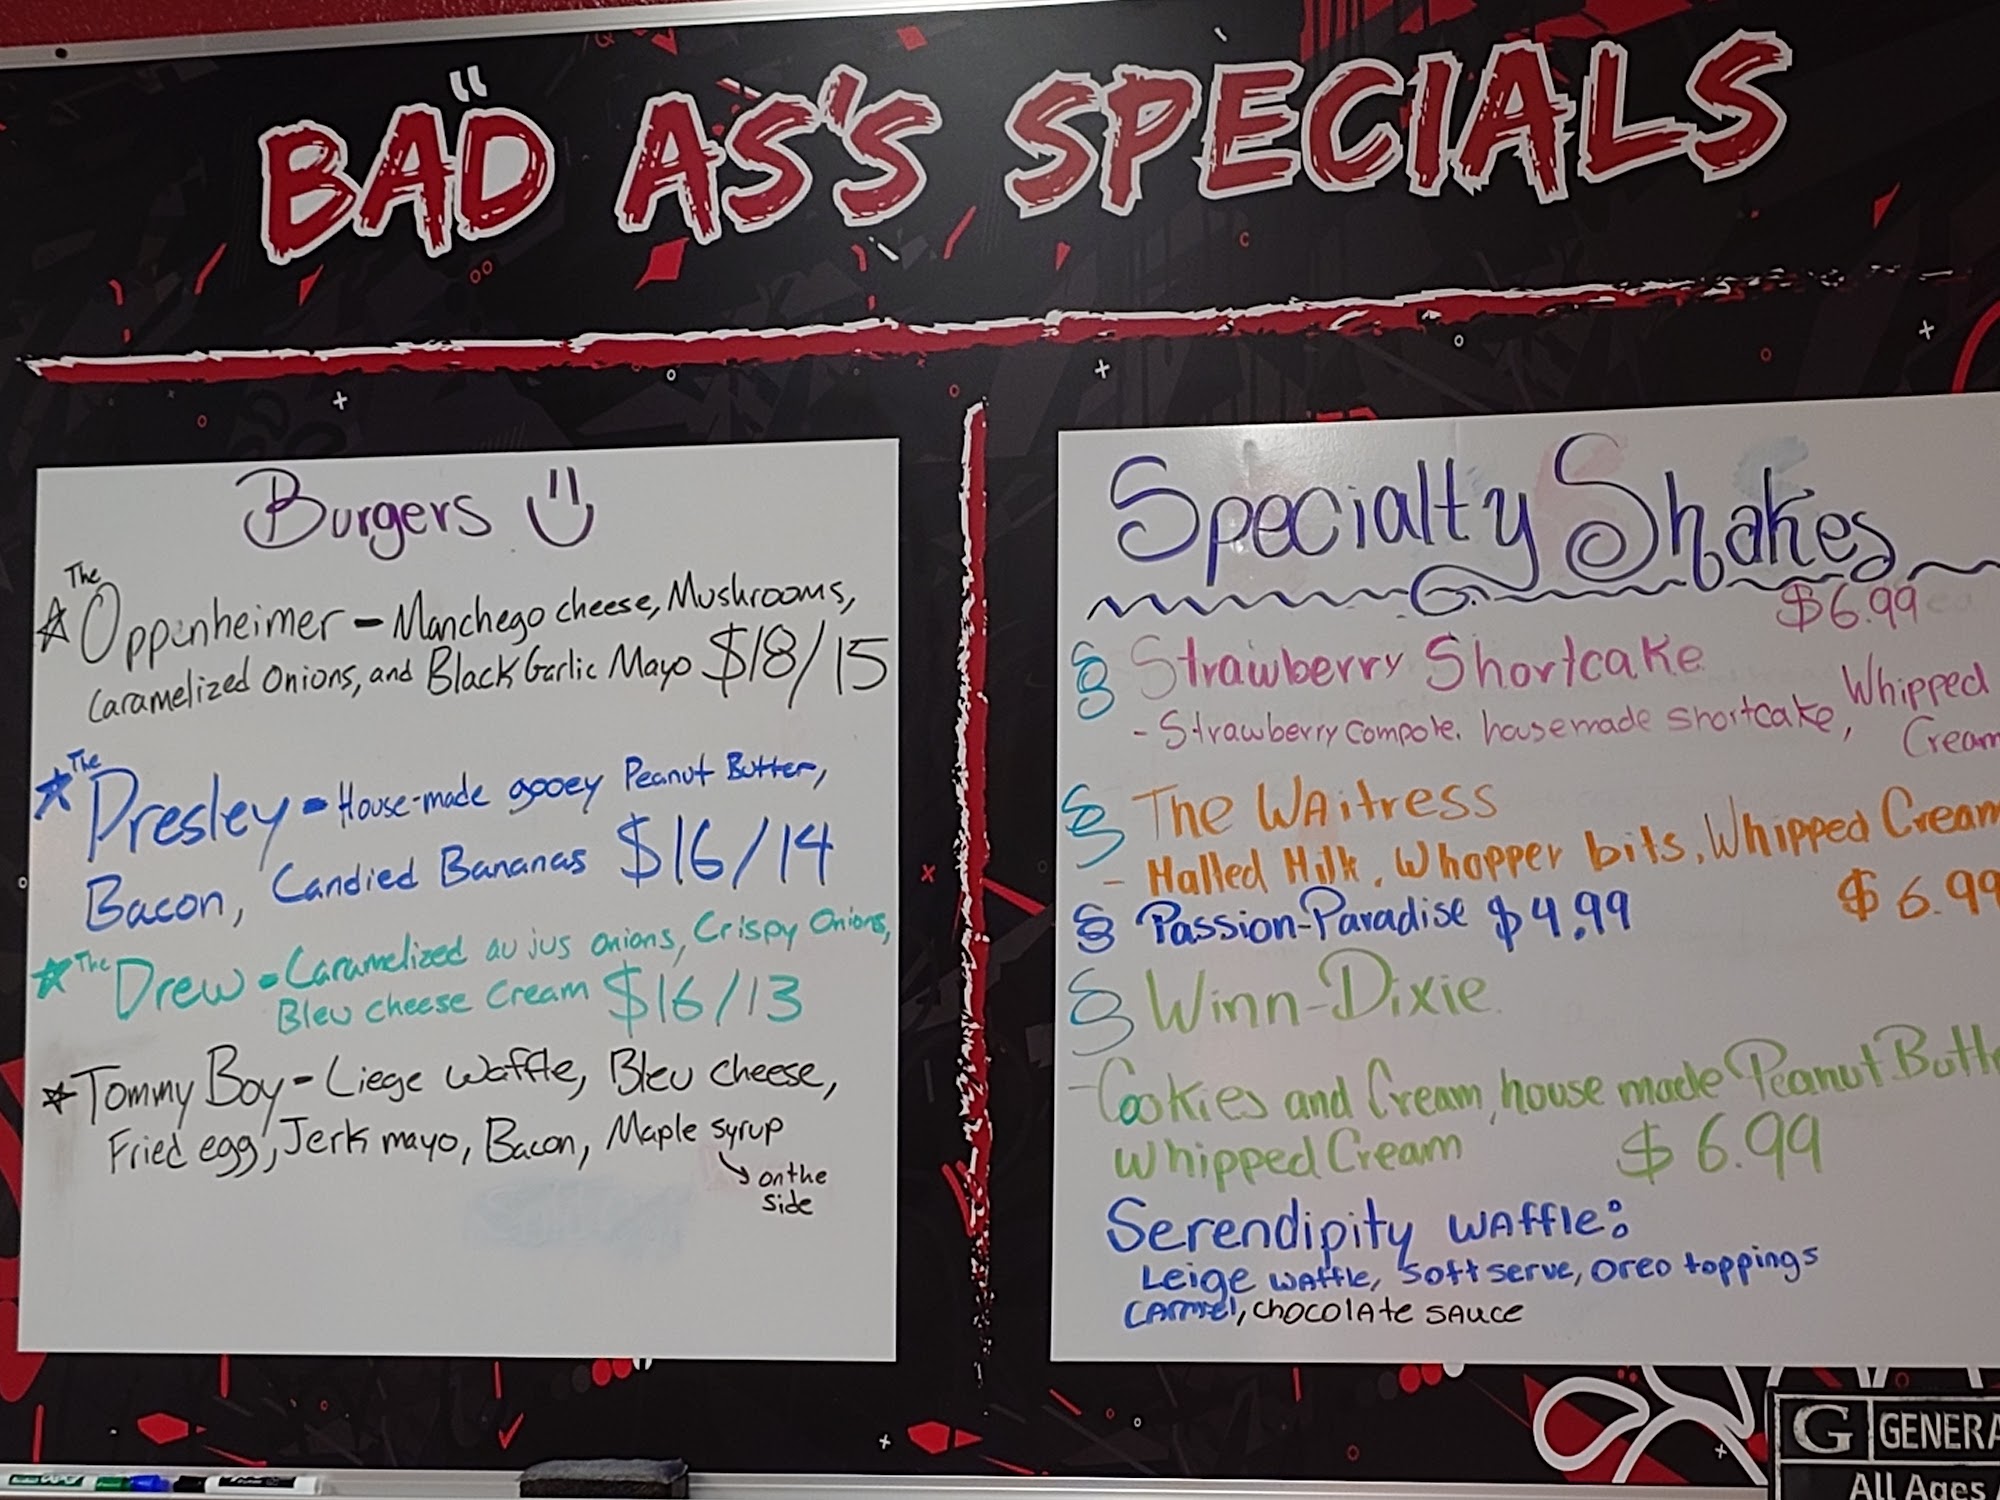 BAD AS'S SPECIALS
Burgers
The
Oppenheimer - Manchego cheese, Mushrooms,
Caramelized Onions, and Black Garlic Mayo $18/15
The
Presley - House-made gooey Peanut Butter,
Bacon, Candied Bananas $16/14
The Drew - Caramelized au jus onions, Crispy Onions,
Bleu cheese Cream $16/13
Tommy Boy - Liege Waffle, Bleu cheese,
Fried egg, Jerk mayo, Bacon, Maple syrup
on the
side
Specialty Shakes
$6.99
Strawberry Shortcake
- Strawberry compote, housemade shortcake, Whipped
Cream
The Waitress
- Malted Milk, Whopper bits, Whipped Cream
$6.99
Passion-Paradise $4.99
Winn-Dixie
- Cookies and Cream, house made Peanut Butte
Whipped Cream $6.99
Serendipity Waffle:
Leige waffle, Soft serve, Oreo toppings
Carmel, chocolate sauce
G GENERA
All Ages